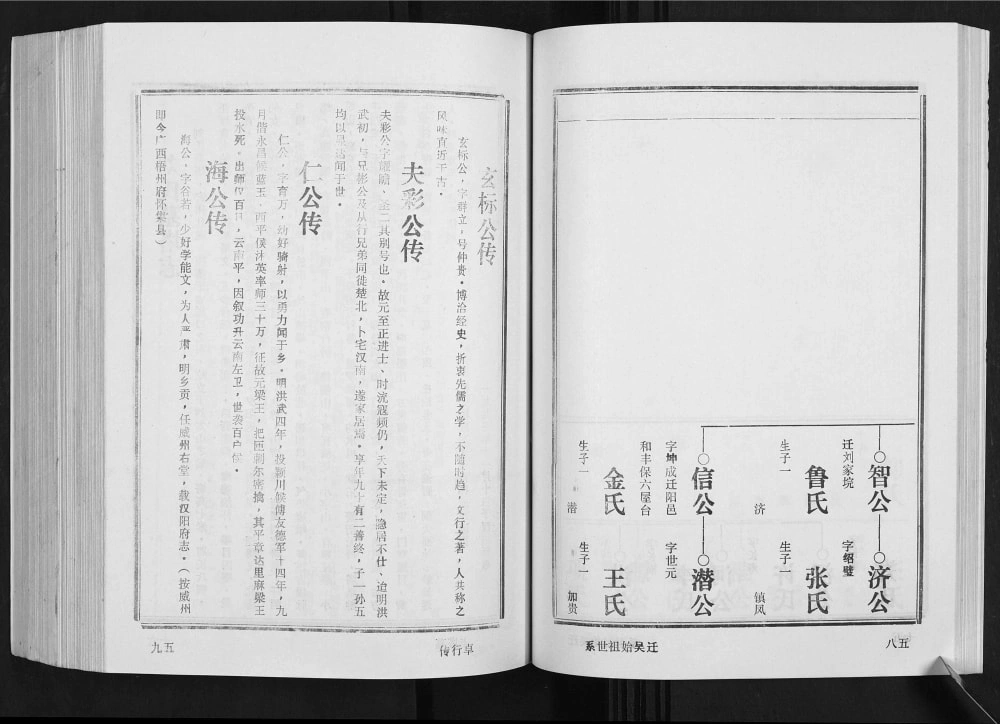 智公
迁刘家垸
鲁氏
生子一
济
济公
字绍璧
张氏
生子一
镇凤
信公
字坤成迁阳邑
和丰保六屋台
金氏
生子一
潜
潜公
字世元
王氏
生子一
加贵
迁吴始祖世系
五八
玄标公传
玄标公，字群立，号仲贵。博洽经史，折衷先儒之学，不随时趋，文行之著，人共称之
风味直近千古。
夫彩公传
夫彩公字 其别号也。故元至正进士、时 寇频仍，天下未定，隐居不仕、迨明洪
武初，与兄彰公及从行兄弟同徙楚北，卜宅汉南，遂家居焉。享年九十有二善终，子一孙五
均以 闻于世。
仁公传
仁公，字育万，幼好骑射，以勇力闻于乡。明洪武四年，投颖川候傅友德军十四年，九
月偕永昌候蓝玉、西平侯沐英率师三十万，征故元梁王，把匝剌尔密擒，其平章达里麻梁王
投水死。出师仅百日，云南平，因叙功升云南左卫，世袭百户候。
海公传
海公，字谷若，少好学能文，为人严肃，明乡贡，任威州右堂，载汉阳府志。（按威州
即今广西梧州府怀集县）
卓行传
五九